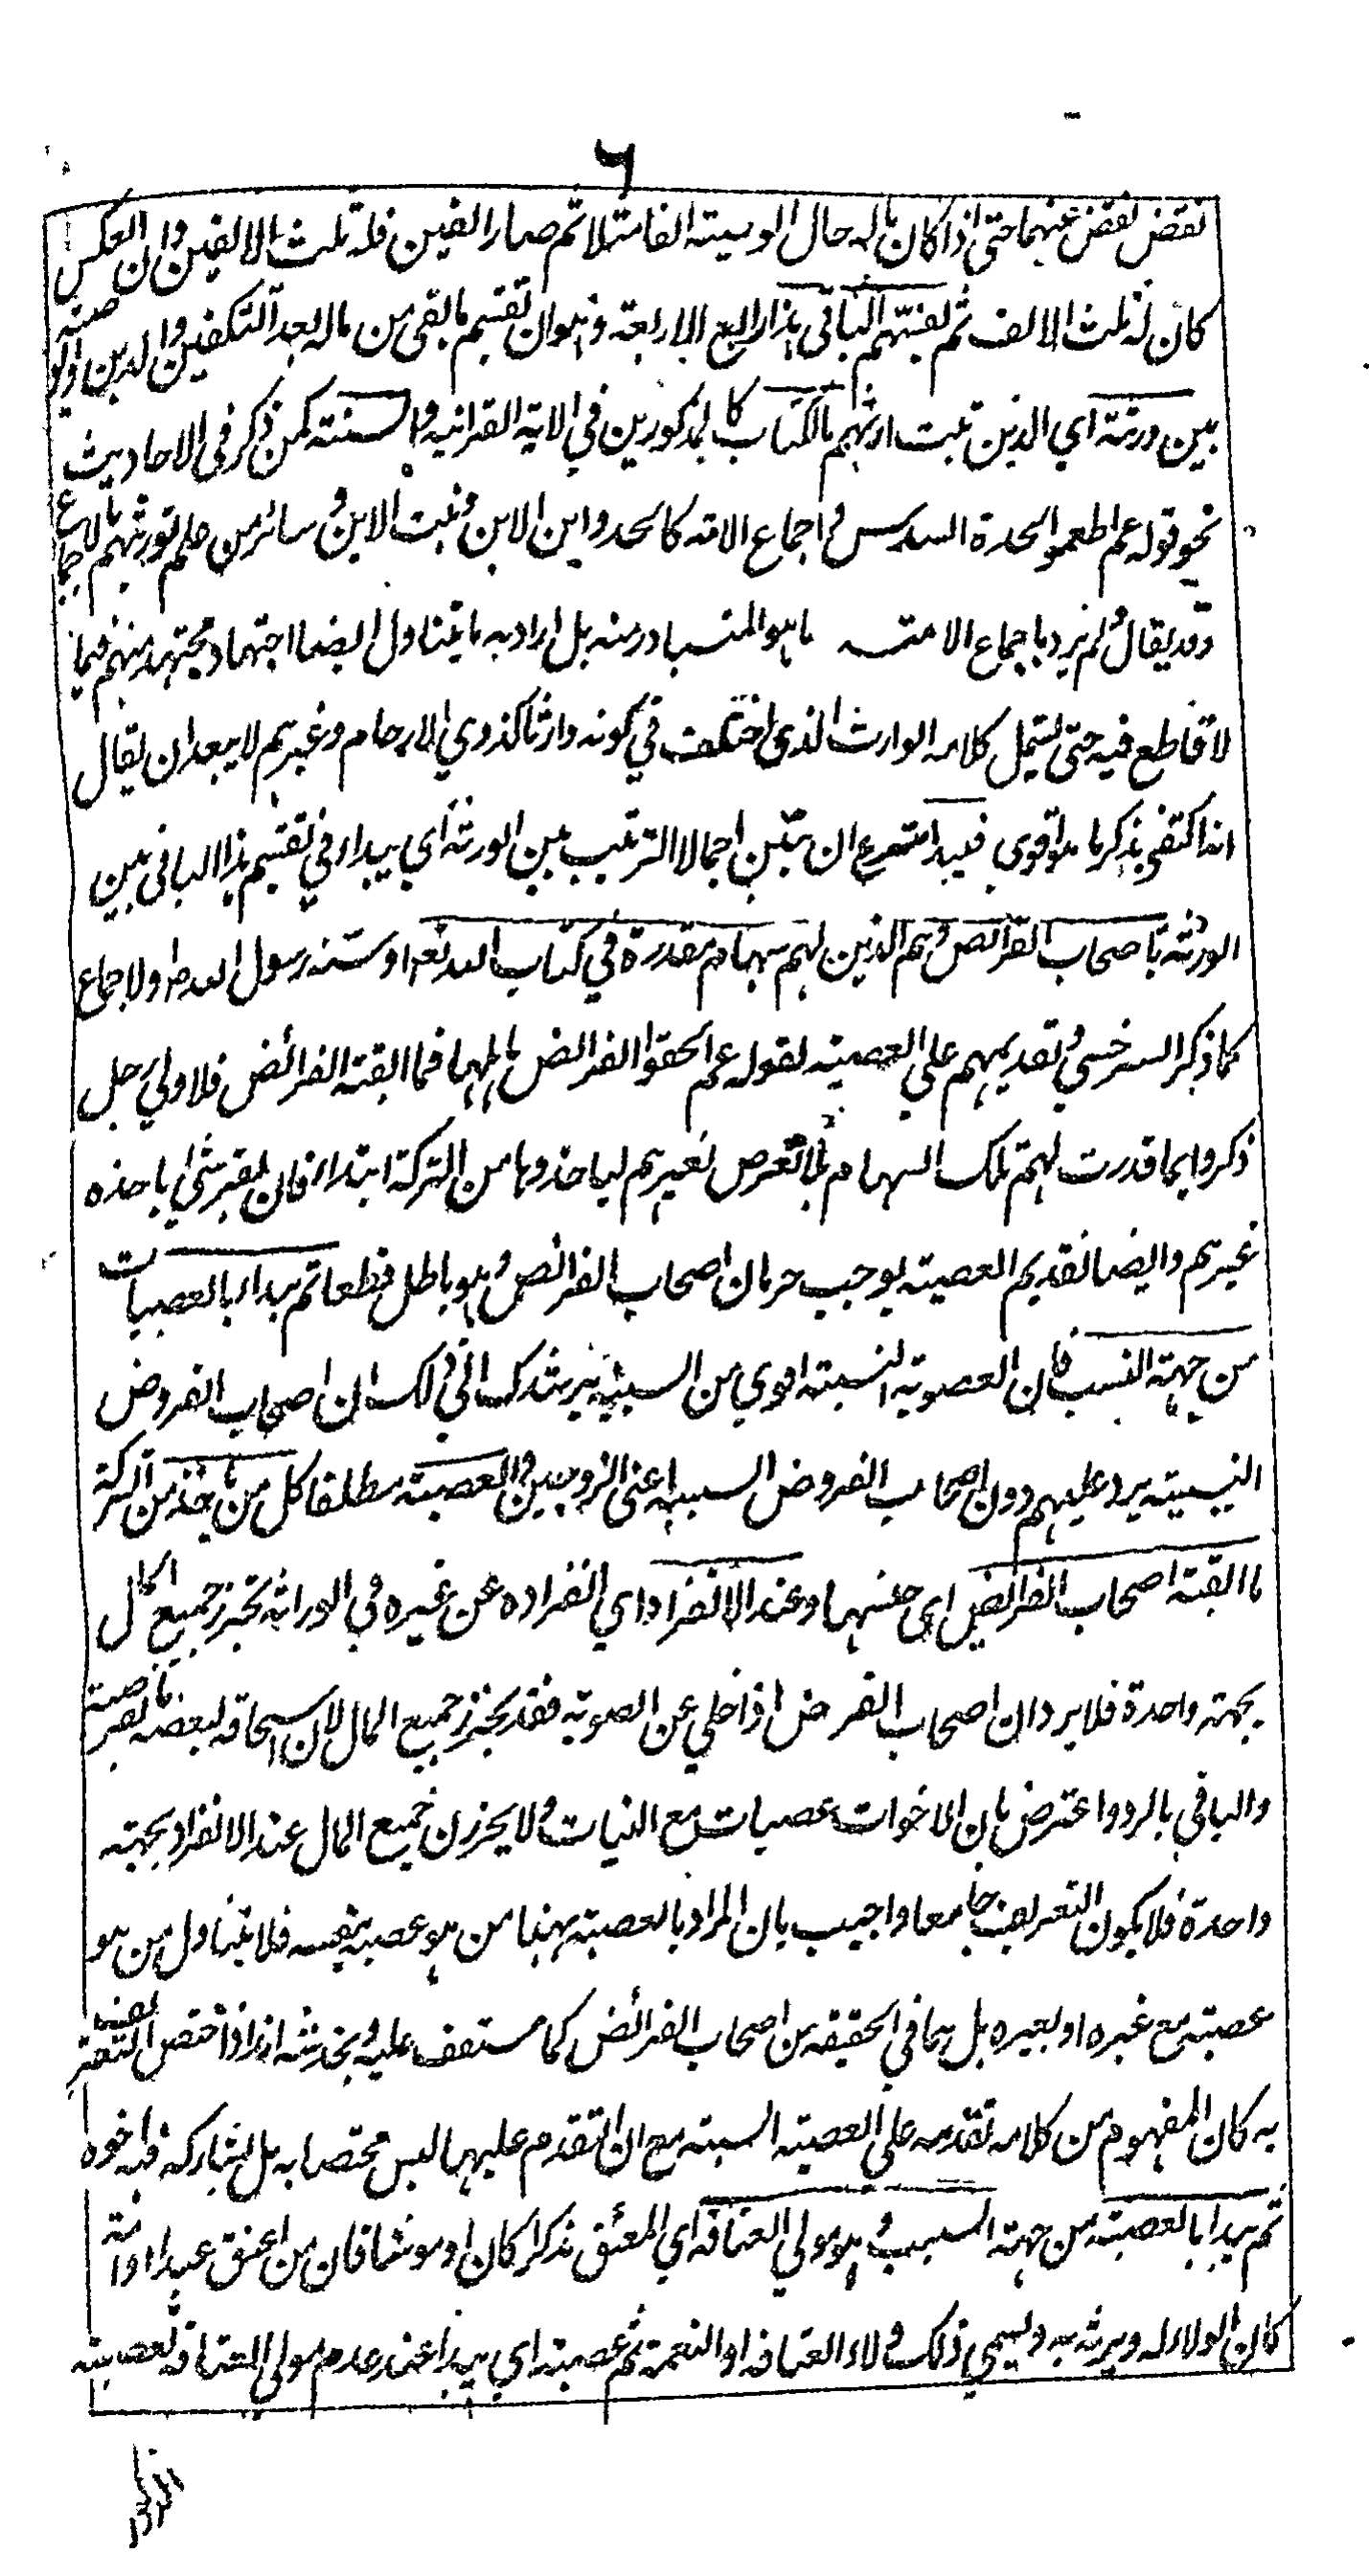 ٦
نقض نقض عنهما حتى اذا كان ماله حال الوسيته الفا مثلا ثم صار الفين فله ثلث الالفين وان انعكس
كان له ثلث الالف ثم يقسم الباقى هذا رابع الاربعة وهو ان تقسيم ما بقى من ماله بعد التكفين والدين والوصية
بين ورثة اي الذين ثبت ارثهم بالكتاب كالمذكورين في الاية القرانيه والسنته كمن ذكر في الاحاديث
نحو قوله عم اطعموا الجدة السدس و اجماع الامة كالجد وابن الابن و بنت الابن و سائر من علم توريثهم بالاجماع
وقد يقال لم يرد باجماع الامته ما هو المتبادر منه بل اراد به ما يتناول ايضا اجتهاد مجتهد منهم فيما
لا قاطع فيه حتى يشتمل كلامه الوارث الذي اختلف في كونه وارثا كذوي الارحام وغيرهم لا يبعد ان يقال
انه اكتفى بذكر ما هو اقوى فيبدا شرع ان يبين اجمالا الترتيب بين الورثة اي يبدا في تقسيم هذا الباقى بين
الورثه باصحاب الفرائض وهم الذين لهم سهام مقدرة في كتاب الله تعم او سنته رسول الله او الاجماع
كما ذكر السرخسي و تقديمهم على العصبته لقوله عم الحقوا الفرائض باهلها فما ابقته الفرائض فلاولي رجل
ذكر وانما قدرت لهم تلك السهام بلا تعرض لغيرهم لياخذوها من التركة ابتداء فان بقى شئ ياخذه
غيرهم وايضا تقديم العصبته يوجب حرمان اصحاب الفرائض و هو باطل قطعا ثم يبداء بالعصبات
من جهة النسب فان العصوبة النسبته اقوي من السببية يرشدك الى ذلك ان اصحاب الفروض
النسبيته يرد عليهم دون اصحاب الفروض السببيه اعنى الزوجين و العصبته مطلقا كل من ياخذ من التركة
ما ابقته اصحاب الفرائض اى جنسها وعند الانفراد اي انفراده عن غيره في الوراثة يحرز جميع المال
بجهته واحدة فلا يرد ان اصحاب الفرض اذا خلي عن العصوبة فقد يحرز جميع المال لان استحاقه لبعضه بالفرضية
والباقي بالرد واعترض بان الاخوات عصبات مع البنات و لا يحرزن جميع المال عند الانفراد بجهته
واحدة فلا يكون التعريف جامعا واجيب بان المراد بالعصبة ههنا من هو عصبة بنفسه فلا يتناول من هو
عصبته مع غيره او بغيره بل هما في الحقيقه من اصحاب الفرائض كما ستقف عليه و يخدشه انه اذا اختص التعريف
به كان المفهوم من كلامه تقدمه على العصبته السببته مع ان التقدم عليهما ليس مختصا به بل يشاركه فيه اخوه
ثم يبدا بالعصبته من جهته السبب و هو مولي العتاقه اي المعتق مذكرا كان او مونثا فان من اعتق عبدا او امة
كان الولاء له ويرثه به ويسمي ذلك ولاء العتاقه او النعمة ثم عصبته اي يبدا عند عدم مولي العتاقه بعصبته